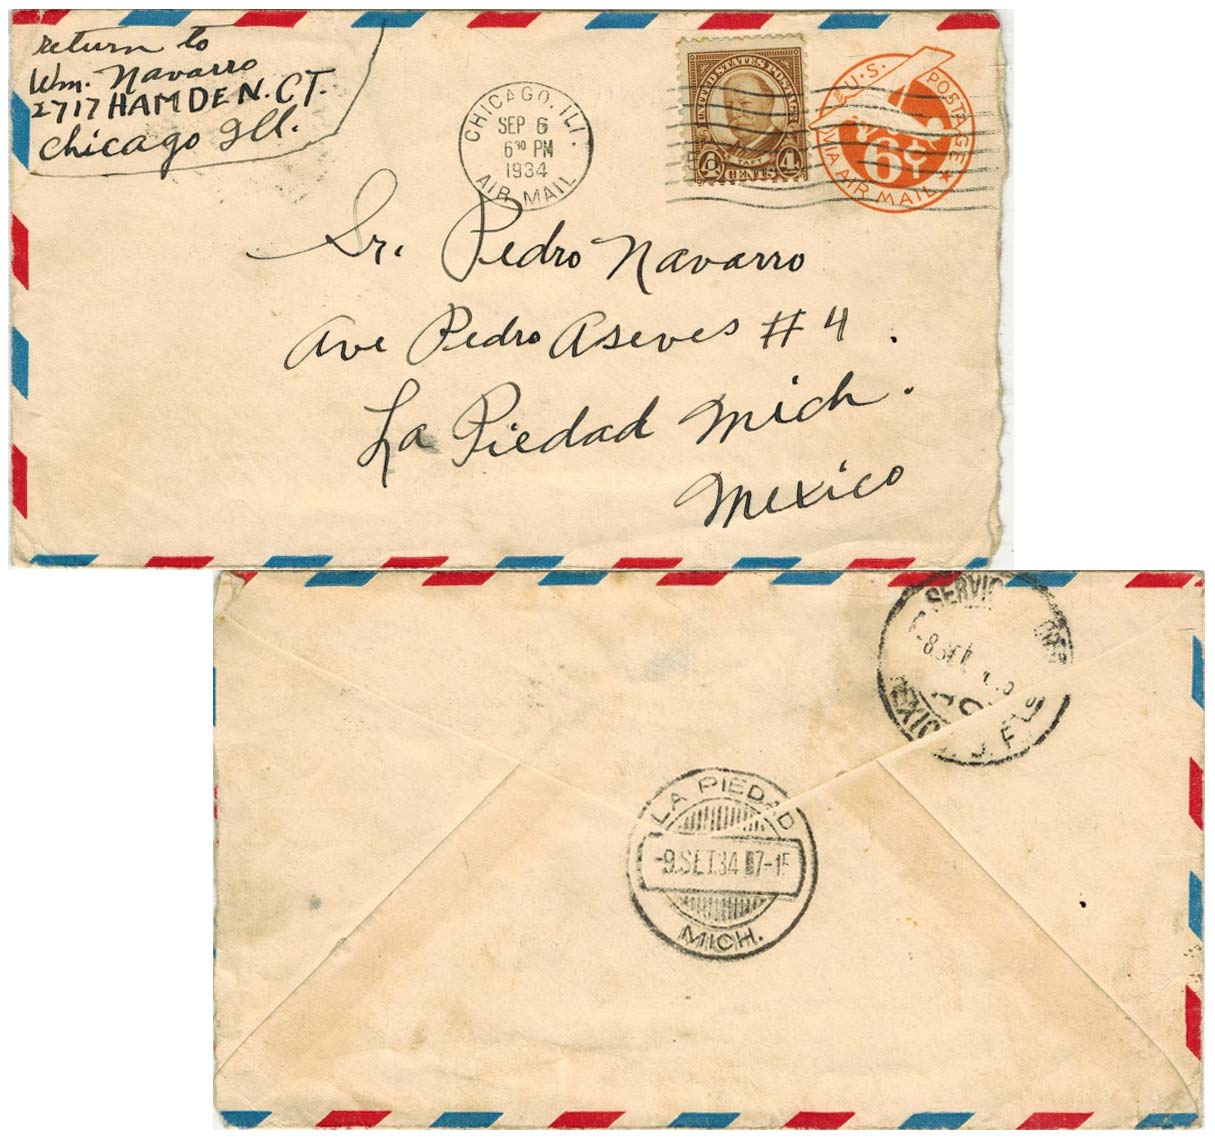 return to
Wm. Navarro
2717 HAMDEN. CT.
Chicago Ill.
CHICAGO, ILL.
SEP 6
6 30 PM
1934
AIR MAIL
UNITED STATES POSTAGE
TAFT
4 CENTS 4
U.S. POSTAGE
6¢
VIA AIR MAIL
Sr. Pedro Navarro
Ave Pedro Aseves # 4.
La Piedad Mich.
Mexico
SERVICIO
-8 SET
MEXICO, D. F.
LA PIEDAD
-9. SET. 34 17-15
MICH.